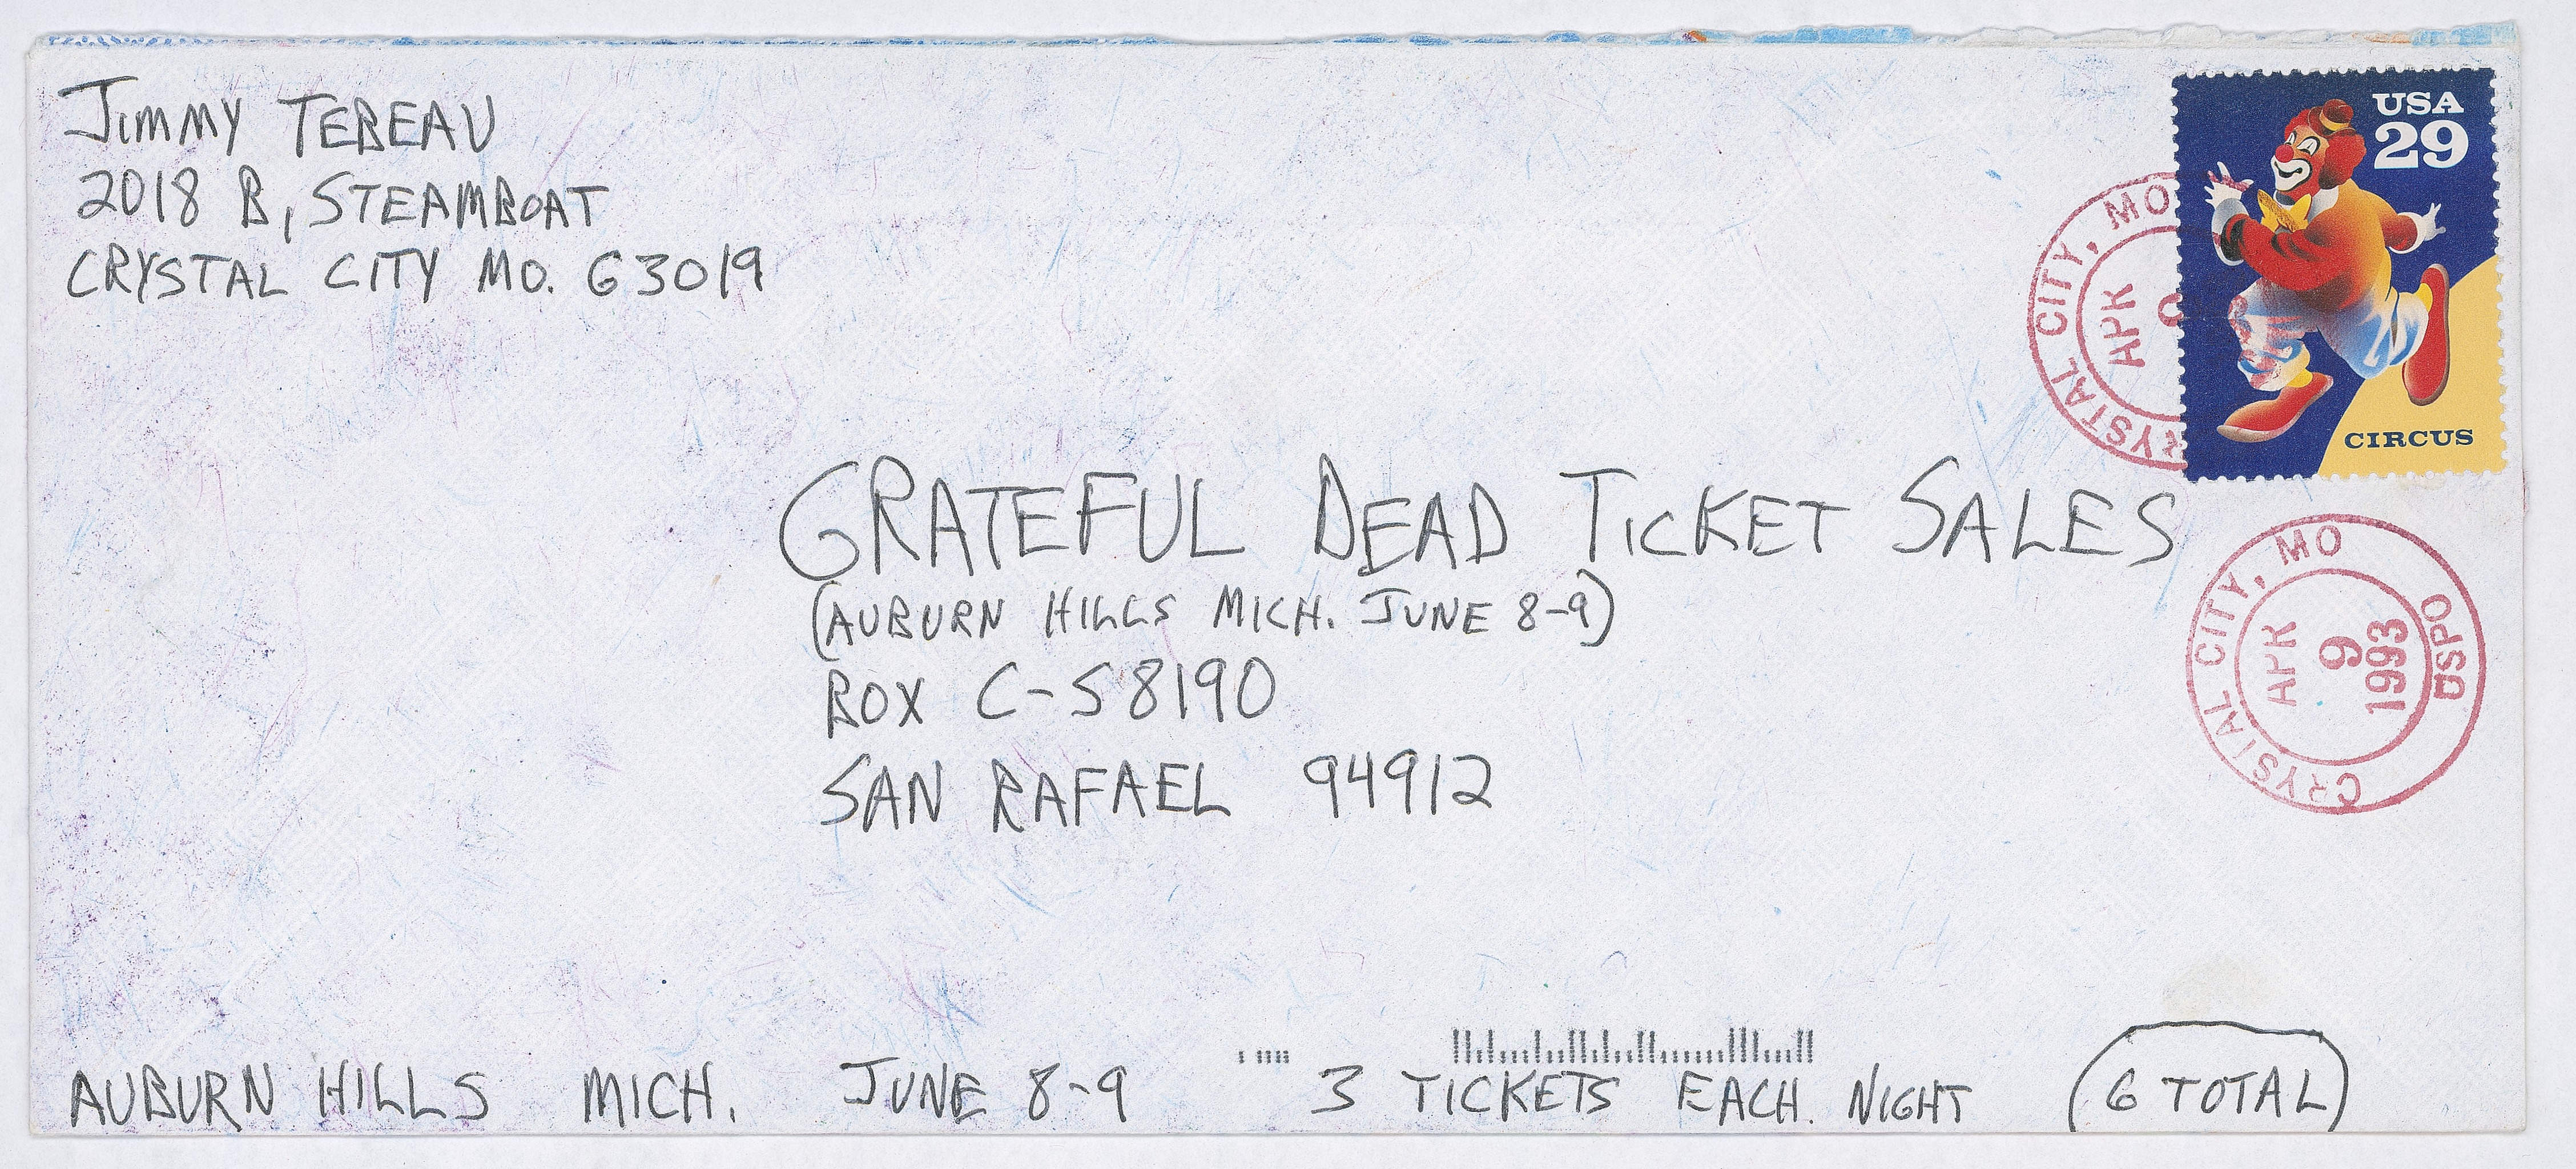 JIMMY TEBEAU
2018 B, STEAMBOAT
CRYSTAL CITY MO. 63019
USA
29
CIRCUS
CRYSTAL CITY, MO
APR
GRATEFUL DEAD TICKET SALES
(AUBURN HILLS MICH. JUNE 8-9)
BOX C-S8190
SAN RAFAEL 94912
CRYSTAL CITY, MO
USPO
APR
9
1993
AUBURN HILLS MICH. JUNE 8-9 3 TICKETS EACH. NIGHT (6 TOTAL)